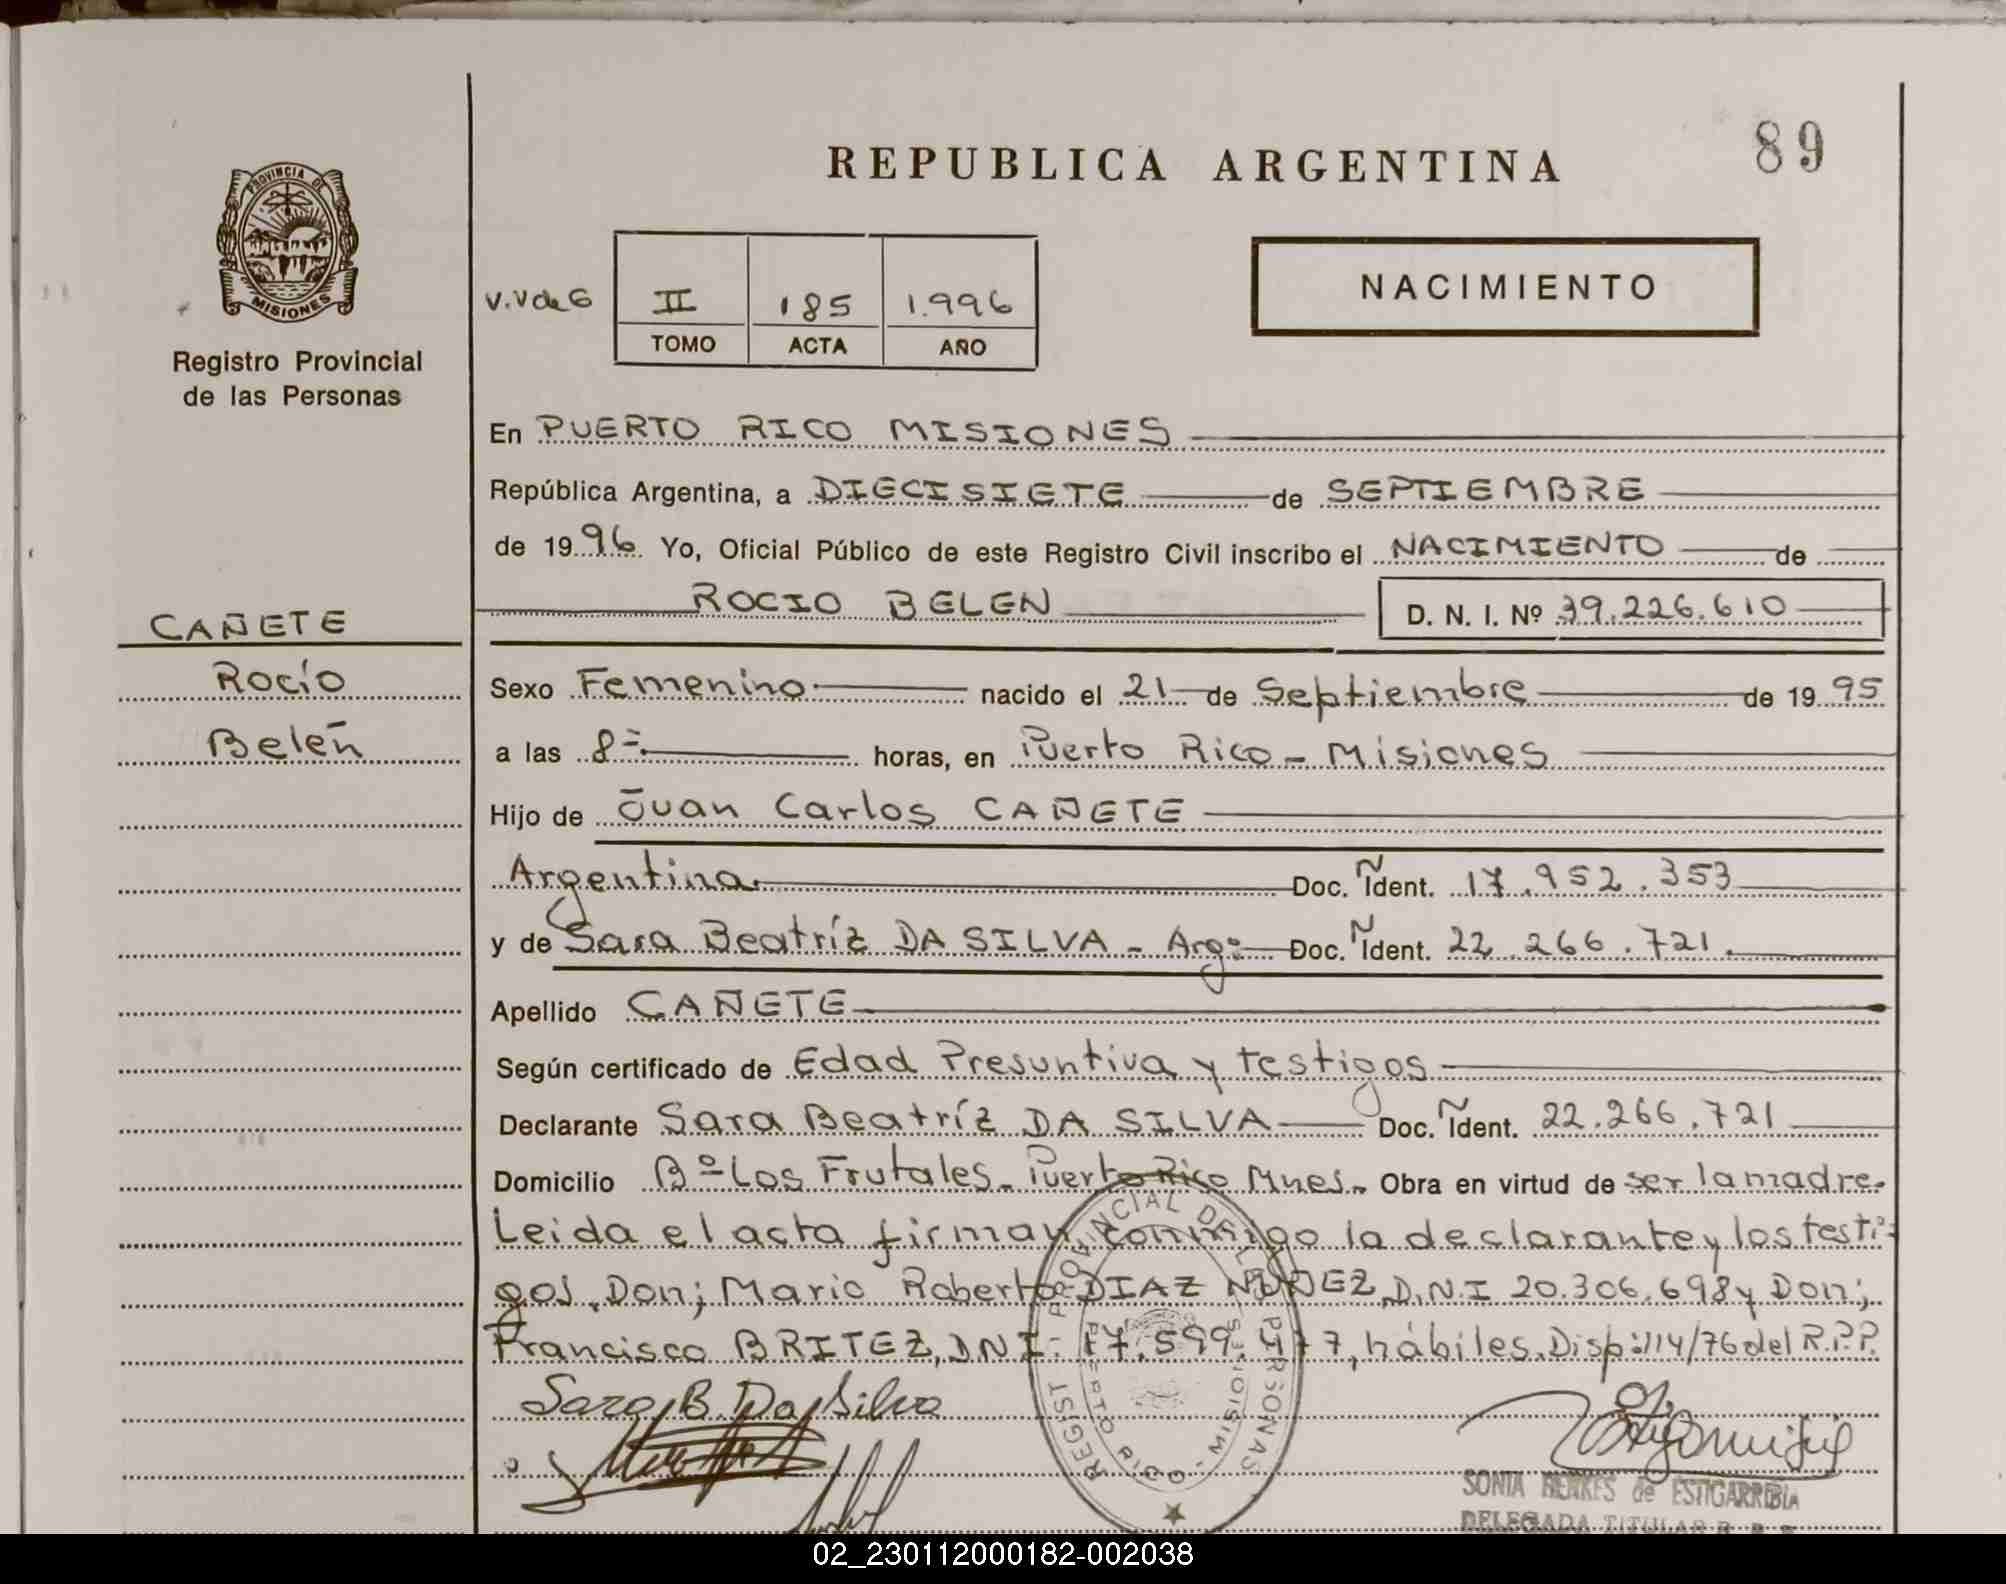 89
REPUBLICA ARGENTINA
PROVINCIA DE
MISIONES
Registro Provincial
de las Personas
V.V de G
II 185 1.996
TOMO ACTA AÑO
NACIMIENTO
En PUERTO RICO MISIONES
República Argentina, a DIECISIETE de SEPTIEMBRE
de 1996 Yo, Oficial Público de este Registro Civil inscribo el NACIMIENTO de
ROCIO BELEN D. N. I. Nº 39.226.610
CAÑETE
Rocío
Belén
Sexo Femenino nacido el 21 de Septiembre de 1995
a las 8= horas, en Puerto Rico - Misiones
Hijo de Juan Carlos CAÑETE
Argentina Doc. Ñ Ident. 17.952.353
y de Sara Beatríz DA SILVA - Arg: Doc. Ñ Ident. 22.266.721.
Apellido CAÑETE
Según certificado de Edad Presuntiva y testigos
Declarante Sara Beatríz DA SILVA Doc. Ñ Ident. 22.266.721
Domicilio Bº Los Frutales - Puerto Rico Mnes. Obra en virtud de ser la madre.
Leida el acta firman conmigo la declarante y los testi-
gos, Don; Mario Roberto DIAZ NUÑEZ, D.N.I 20.306.698 y Don;
Francisco BRITEZ, DNI: 17.599.477, hábiles. Disp: 114/76 del R.P.P.
Sara B. Da Silva
REGIST. PROVINCIAL DE LAS PERSONAS
PUERTO RICO - MISIONES
SONIA HENKES de ESTIGARRIBIA
DELEGADA TITULAR R. P. P.
02_230112000182-002038